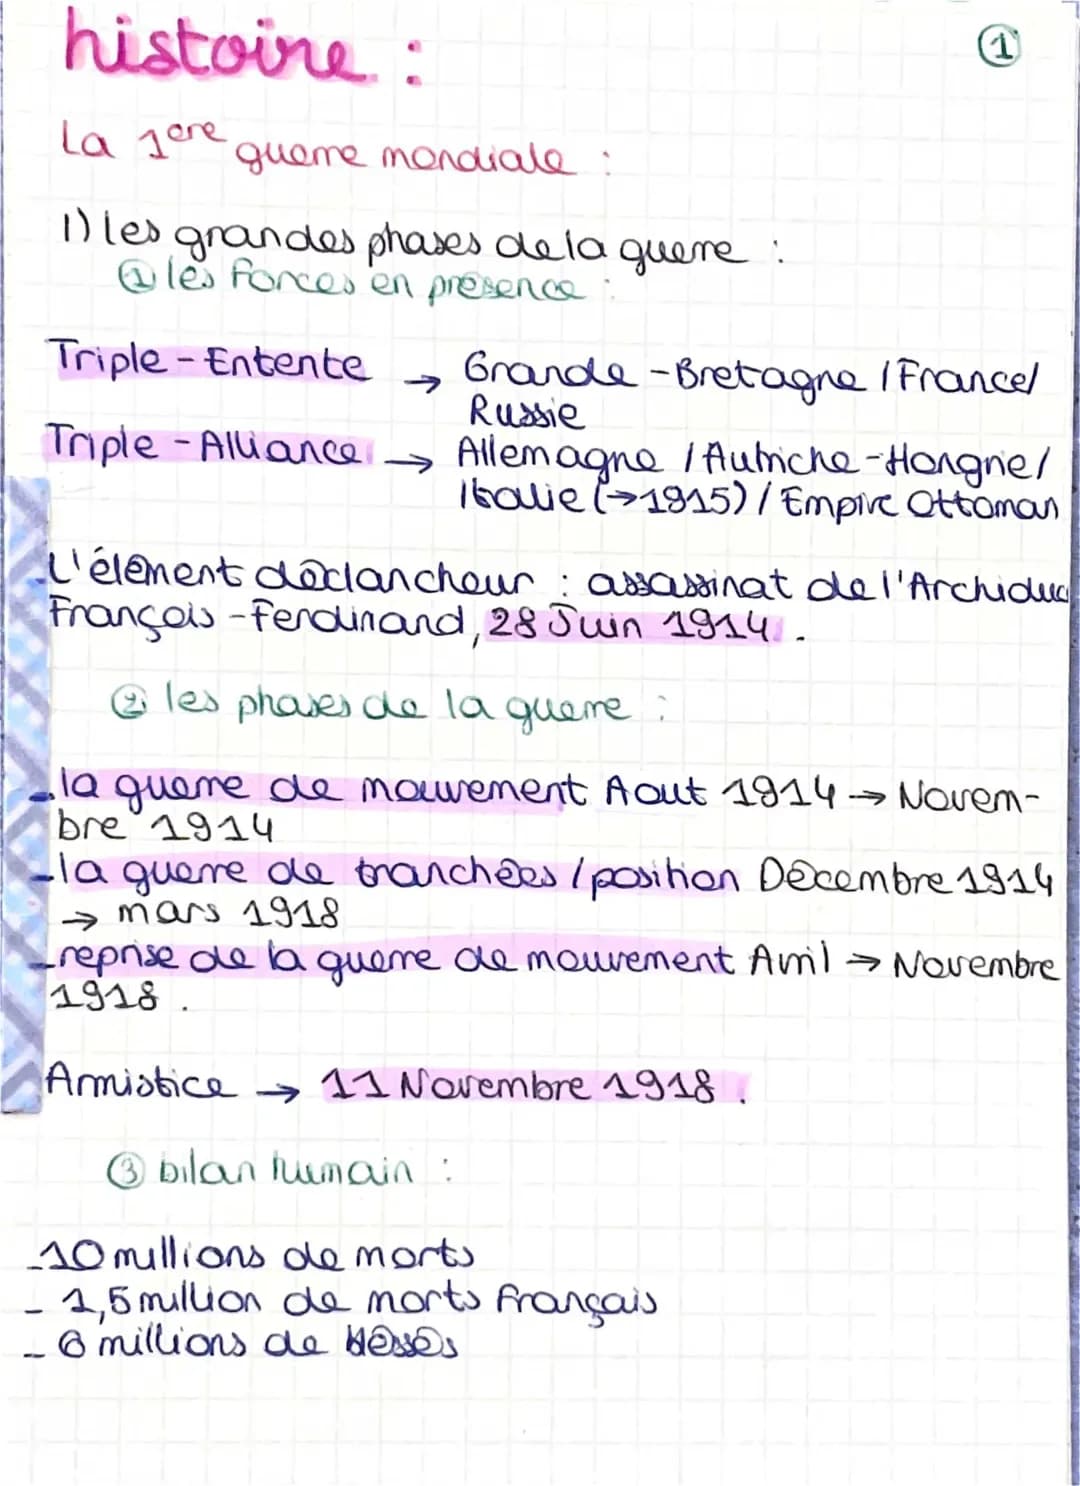 histoire :
①
La 1ere guerre mondiale :
1) les grandes phases de la guerre :
① les forces en présence :
Triple-Entente → Grande-Bretagne / France/
Russie
Triple-Alliance → Allemagne / Autriche-Hongrie/
Italie (→1915) / Empire Ottoman
L'élément déclancheur : assassinat de l'Archiduc
François-Ferdinand, 28 Juin 1914.
② les phases de la guerre :
-la guerre de mouvement Aout 1914 → Novem-
bre 1914
-la guerre de tranchées / position Décembre 1914
→ mars 1918
-reprise de la guerre de mouvement Avril → Novembre
1918.
Armistice → 11 Novembre 1918.
③ bilan humain :
-10 millions de morts
- 1,5 million de morts français
- millions de blessés